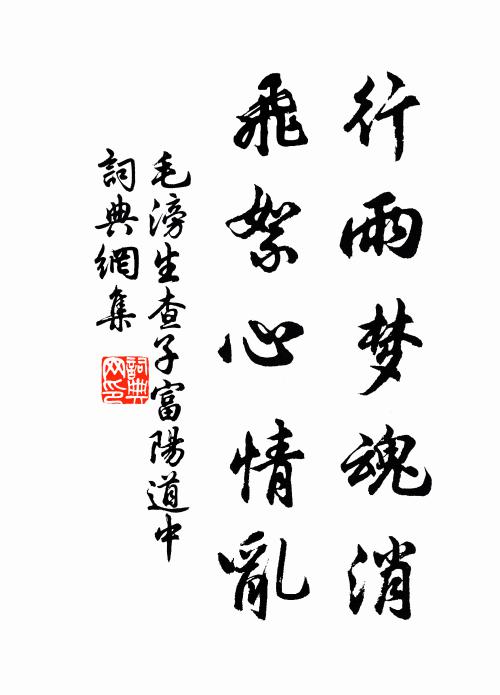 行雨梦魂消
飛絮心情亂
毛滂生查子富陽道中
詞典網集
詞典網印